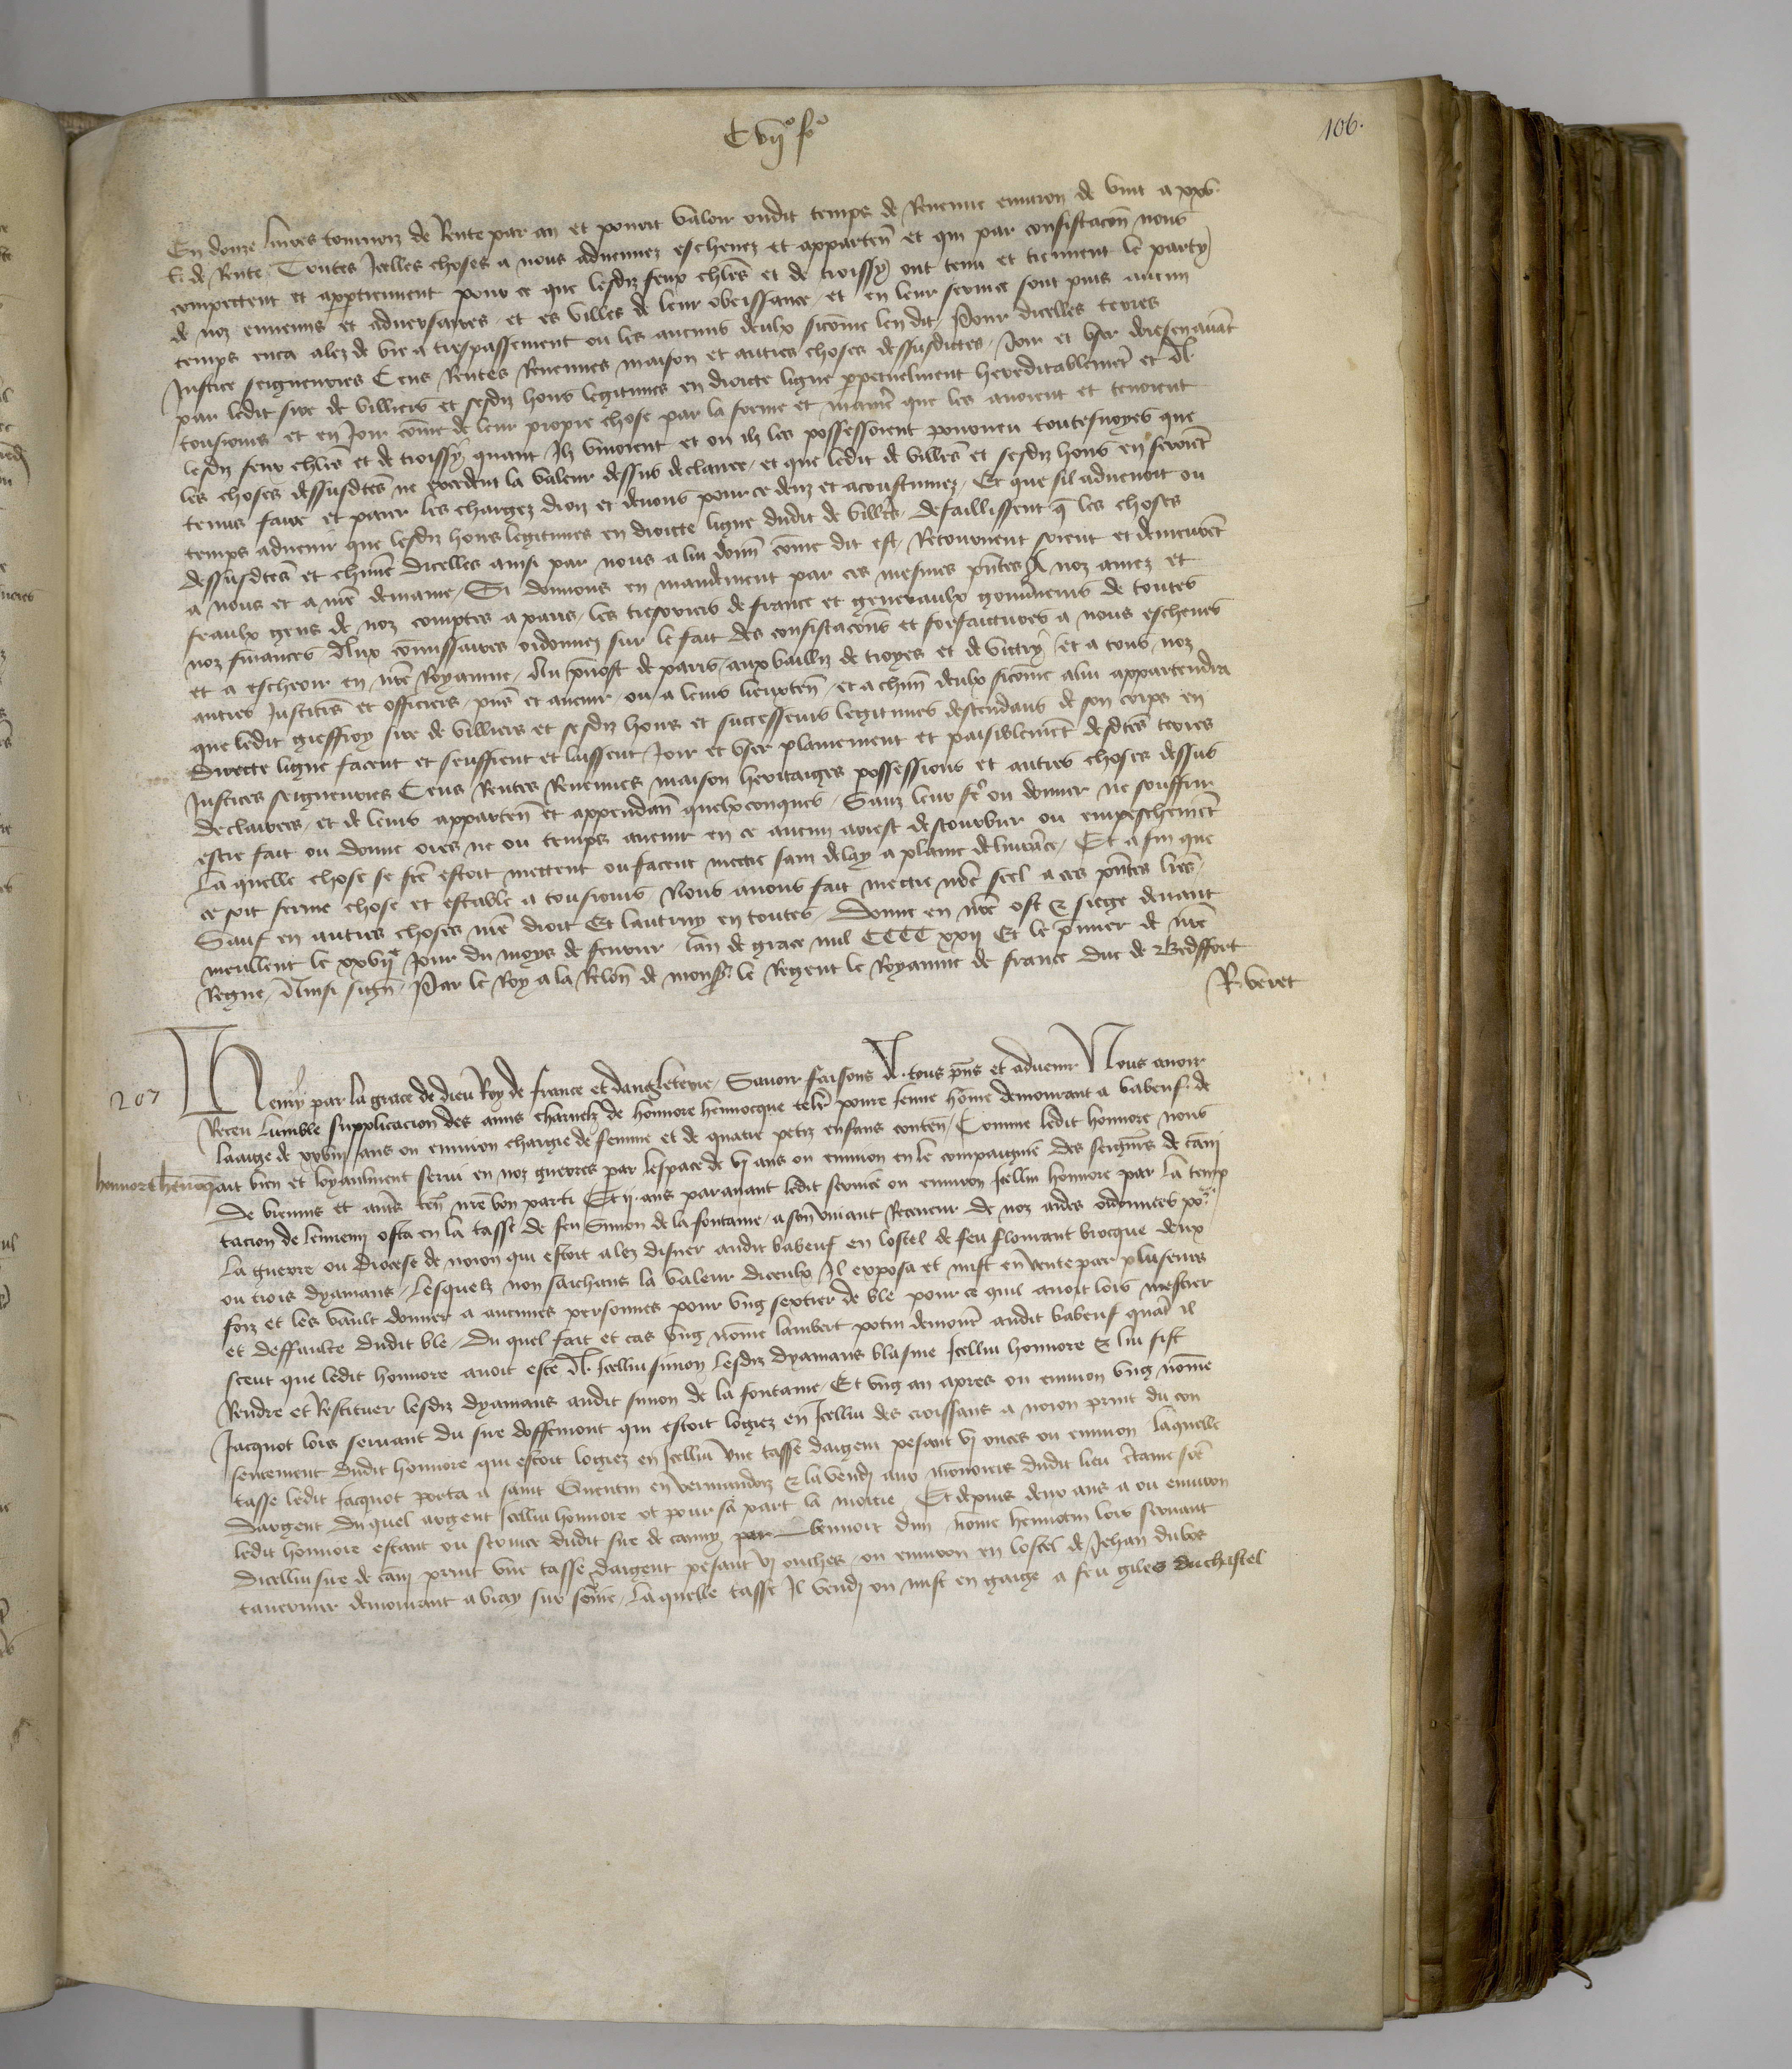 C vii° f°
106.
En douze livres tournoiz de Rente par an et povoit valoir oudit temps de Revenue environ de vint a xxv
l. de Rente Toutes Icelles choses a nous advenuez escheuez et apparten et qui par confiscacon nous
compettent et appartiennent pour ce que lesdiz feux chlrs et de troissy ont tenu et tiennent le party
de noz ennemis et adversaires et es villes de leur obeissance et en leur service sont puis aucun
temps enca alez de vie a trespassement ou les aucuns deulx sicome len dit Pour dicelles terres
Justice seigneuries Cens Rentes Revenues maison et autres choses dessusdictes Joir et User doresenavant
par ledit sire de villiers et sesdiz hoirs legitimes en droicte ligne perpetuelment hereditablement et A
tousiours et en Joir come de leur propre chose par la forme et maniere que les avoient et tenoient
lesdiz feux chlrs et de troissy quant Ilz vivoient et ou ilz les possessoient pourveu toutesvoyes que
les choses dessusdtes ne excedent la valeur dessus declairee et que ledit de villiers et sesdiz hoirs en feront
tenus faire et paier les chargez droiz et devoirs pour ce deuz et acoustumez Et que sil advenoit ou
temps advenir que lesdiz hoirs legitimes en droicte ligne dudit de villiers defaillissent q les choses
dessusdtes et chune dicelles ainsi par nous a lui donn come dit est Retournent soient et demeurent
a nous et a nre demaine Si donnons en mandement par ces mesmes pntes A noz amez et
feaulx gens de noz comptes a paris les tresoriers de france et generaulx gouverneurs de toutes
noz finances Aux comissaires ordonnez sur le fait des confiscacons et forfaictures a nous escheues
et a escheoir en nre Royaume Au prvost de paris aux bailliz de troyes et de vittry et a tous noz
autres Justiciers et officiers pns et avenir ou a leurs lieuxten et a chun deulx sicome a lui appartendra
que ledit gieffroy sire de villiers et sesdiz hoirs et successeurs legitimes descendans de son corps en
directe ligne facent et seuffrent et laissent Joir et User plainement et paisiblement desdtes terres
Justices seigneuries Cens Rentes Revenues maison heritaiges possessions et autres choses dessus
declairees et de leurs apparten et appendan quelxconques Sanz leur fe ou donner ne souffrir
estre fait ou donne ores ne ou temps avenir en ce aucun arrest destourbier ou empeschement
La quelle chose se fte estoit mettent ou facent mettre sans delay a plaine delivrance Et a fin que
ce soit ferme chose et estable a tousiours Nous avons fait mettre nre seel a ces pntes lres
Sauf en autres choses nre droit Et lautruy en toutes Donne en nre ost & siege devant
meullent le xxvii jour du moys de fevrier lan de grace mil CCCC xxii Et le prmier de nre
Regne Ainsi sign Par le Roy a la Relon de monsr le Regent le Royaume de france duc de Bedffort
R veret
207
Henry par la grace de dieu Roy de france et dangleterre Savoir faisons A tous pns et advenir Nous avoir
Receu Lumble supplicacion des amis charnelz de honnore hennocque povre jenne home demourant a babeuf de
laaige de xxviii ans ou environ chargie de femme et de quatre petiz enfans conten Comme ledit honnore nous
honnore hennocq
ait bien et loyaulment servi en noz guerres par lespace de vi ans ou environ en le compaignie des seigneurs de cam
De brenius et autres ten nre bon parti Et ii ans paravant ledit service ou environ Icellui honnore par la temp
tacion de lennemi osta en la tasse de feu Simon de la fontaine a son vivant Receveur de noz aides ordonnees por
la guerre ou diocese de noion qui estoit alez disner audit babeuf en lostel de feu flourant brocque deux
ou trois dyamans Lesquelz non saichans la valeur diceulx Il exposa et mist en vente par pluseurs
foiz et les vault donner a aucunes personnes pour ung sextier de ble pour ce quil avoit lors mestier
et deffaulte dudit ble Du quel fait et cas ung nome lambert potin demourt audit babeuf quat il
sceut que ledit honnore avoit oste A Icellui simon lesdiz dyamans blasme Icellui honnore & lui fist
Rendre et Restituer lesdiz dyamans audit simon de la fontaine Et ung an apres ou environ ung nome
Jacquot lors servant du sire doffemont qui estoit logiez en Icellui des croissans a noion print du con
sentement dudit honnore qui estoit logiez en Icellui une tasse dargent pesant vi onces ou environ laquelle
tasse ledit Jacquot porta a saint Quentin en vermandoiz & la vendi aux monnoiers dudit lieu
dargent du quel argent Icellui honnore ot pour sa part la moitie Et depuis deux ans a ou environ
ledit honnore estant ou service dudit sire de camy par bennoit dun nome hennotin lors servant
dicellui sire de cam print une tasse dargent pesant vi onches ou environ en lostel de Jehan dubos
tavernier demourant a bray sur some Laquelle tasse Il vendi ou mist en gaige a feu giles duchastel